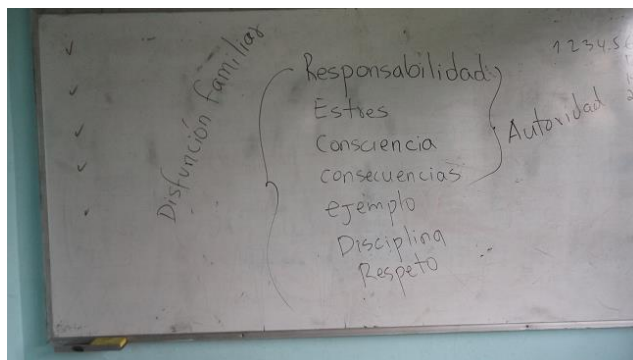 Disfunción familiar
Responsabilidad
Estres
Consciencia
consecuencias
ejemplo
Disciplina
Respeto
Autoridad
1 2 3 4 . 5